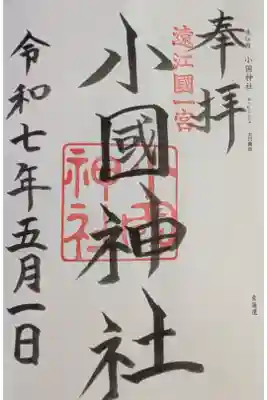 奉拝
遠江國一宮
小國神社
小國神社
令和七年五月一日
小国神社